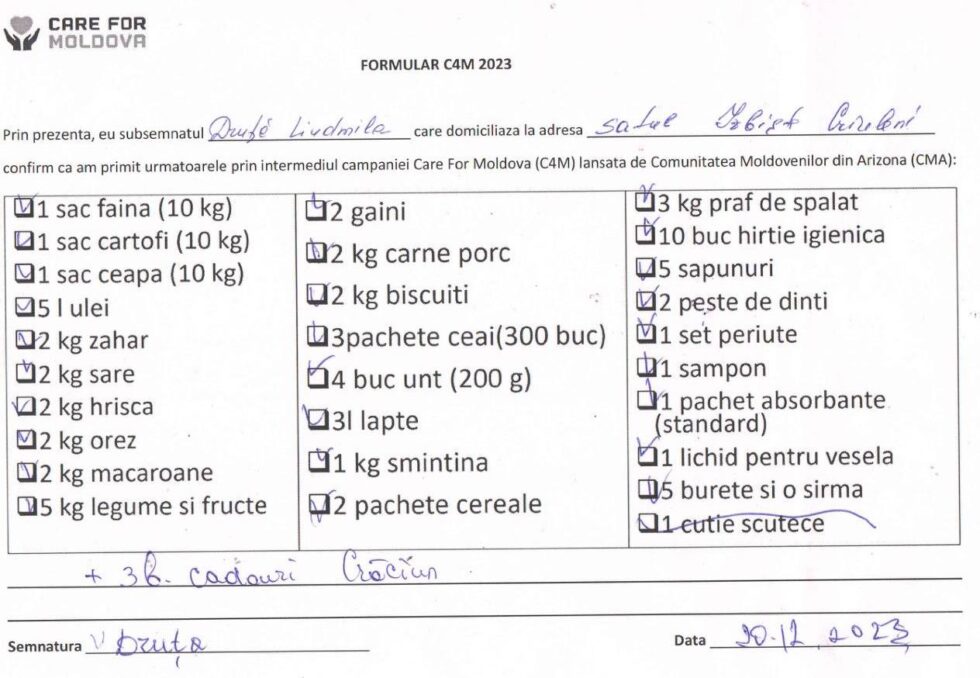 CARE FOR
MOLDOVA
FORMULAR C4M 2023
Prin prezenta, eu subsemnatul Druță Liudmila care domiciliaza la adresa satul Izbişt Criuleni
confirm ca am primit urmatoarele prin intermediul campaniei Care For Moldova (C4M) lansata de Comunitatea Moldovenilor din Arizona (CMA):
1 sac faina (10 kg)
1 sac cartofi (10 kg)
1 sac ceapa (10 kg)
5 l ulei
2 kg zahar
2 kg sare
2 kg hrisca
2 kg orez
2 kg macaroane
5 kg legume si fructe
2 gaini
2 kg carne porc
2 kg biscuiti
3pachete ceai(300 buc)
4 buc unt (200 g)
3l lapte
1 kg smintina
2 pachete cereale
3 kg praf de spalat
10 buc hirtie igienica
5 sapunuri
2 peste de dinti
1 set periute
1 sampon
1 pachet absorbante
(standard)
1 lichid pentru vesela
5 burete si o sirma
1 cutie scutece
+ 3b. cadouri Crăciun
Semnatura Druța
Data 20.12.2023